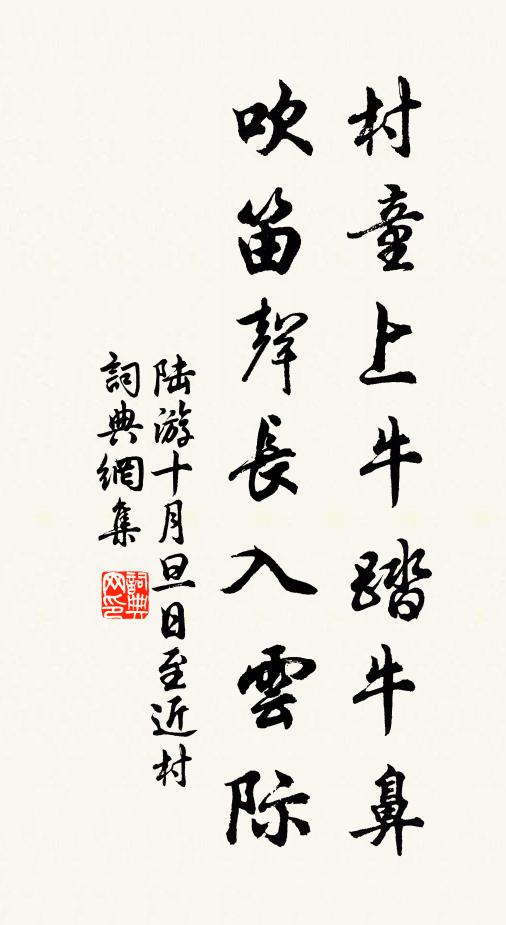 村童上牛踏牛鼻
吹笛聲長入雲际
陆游十月旦日至近村
詞典網集
詞典网印